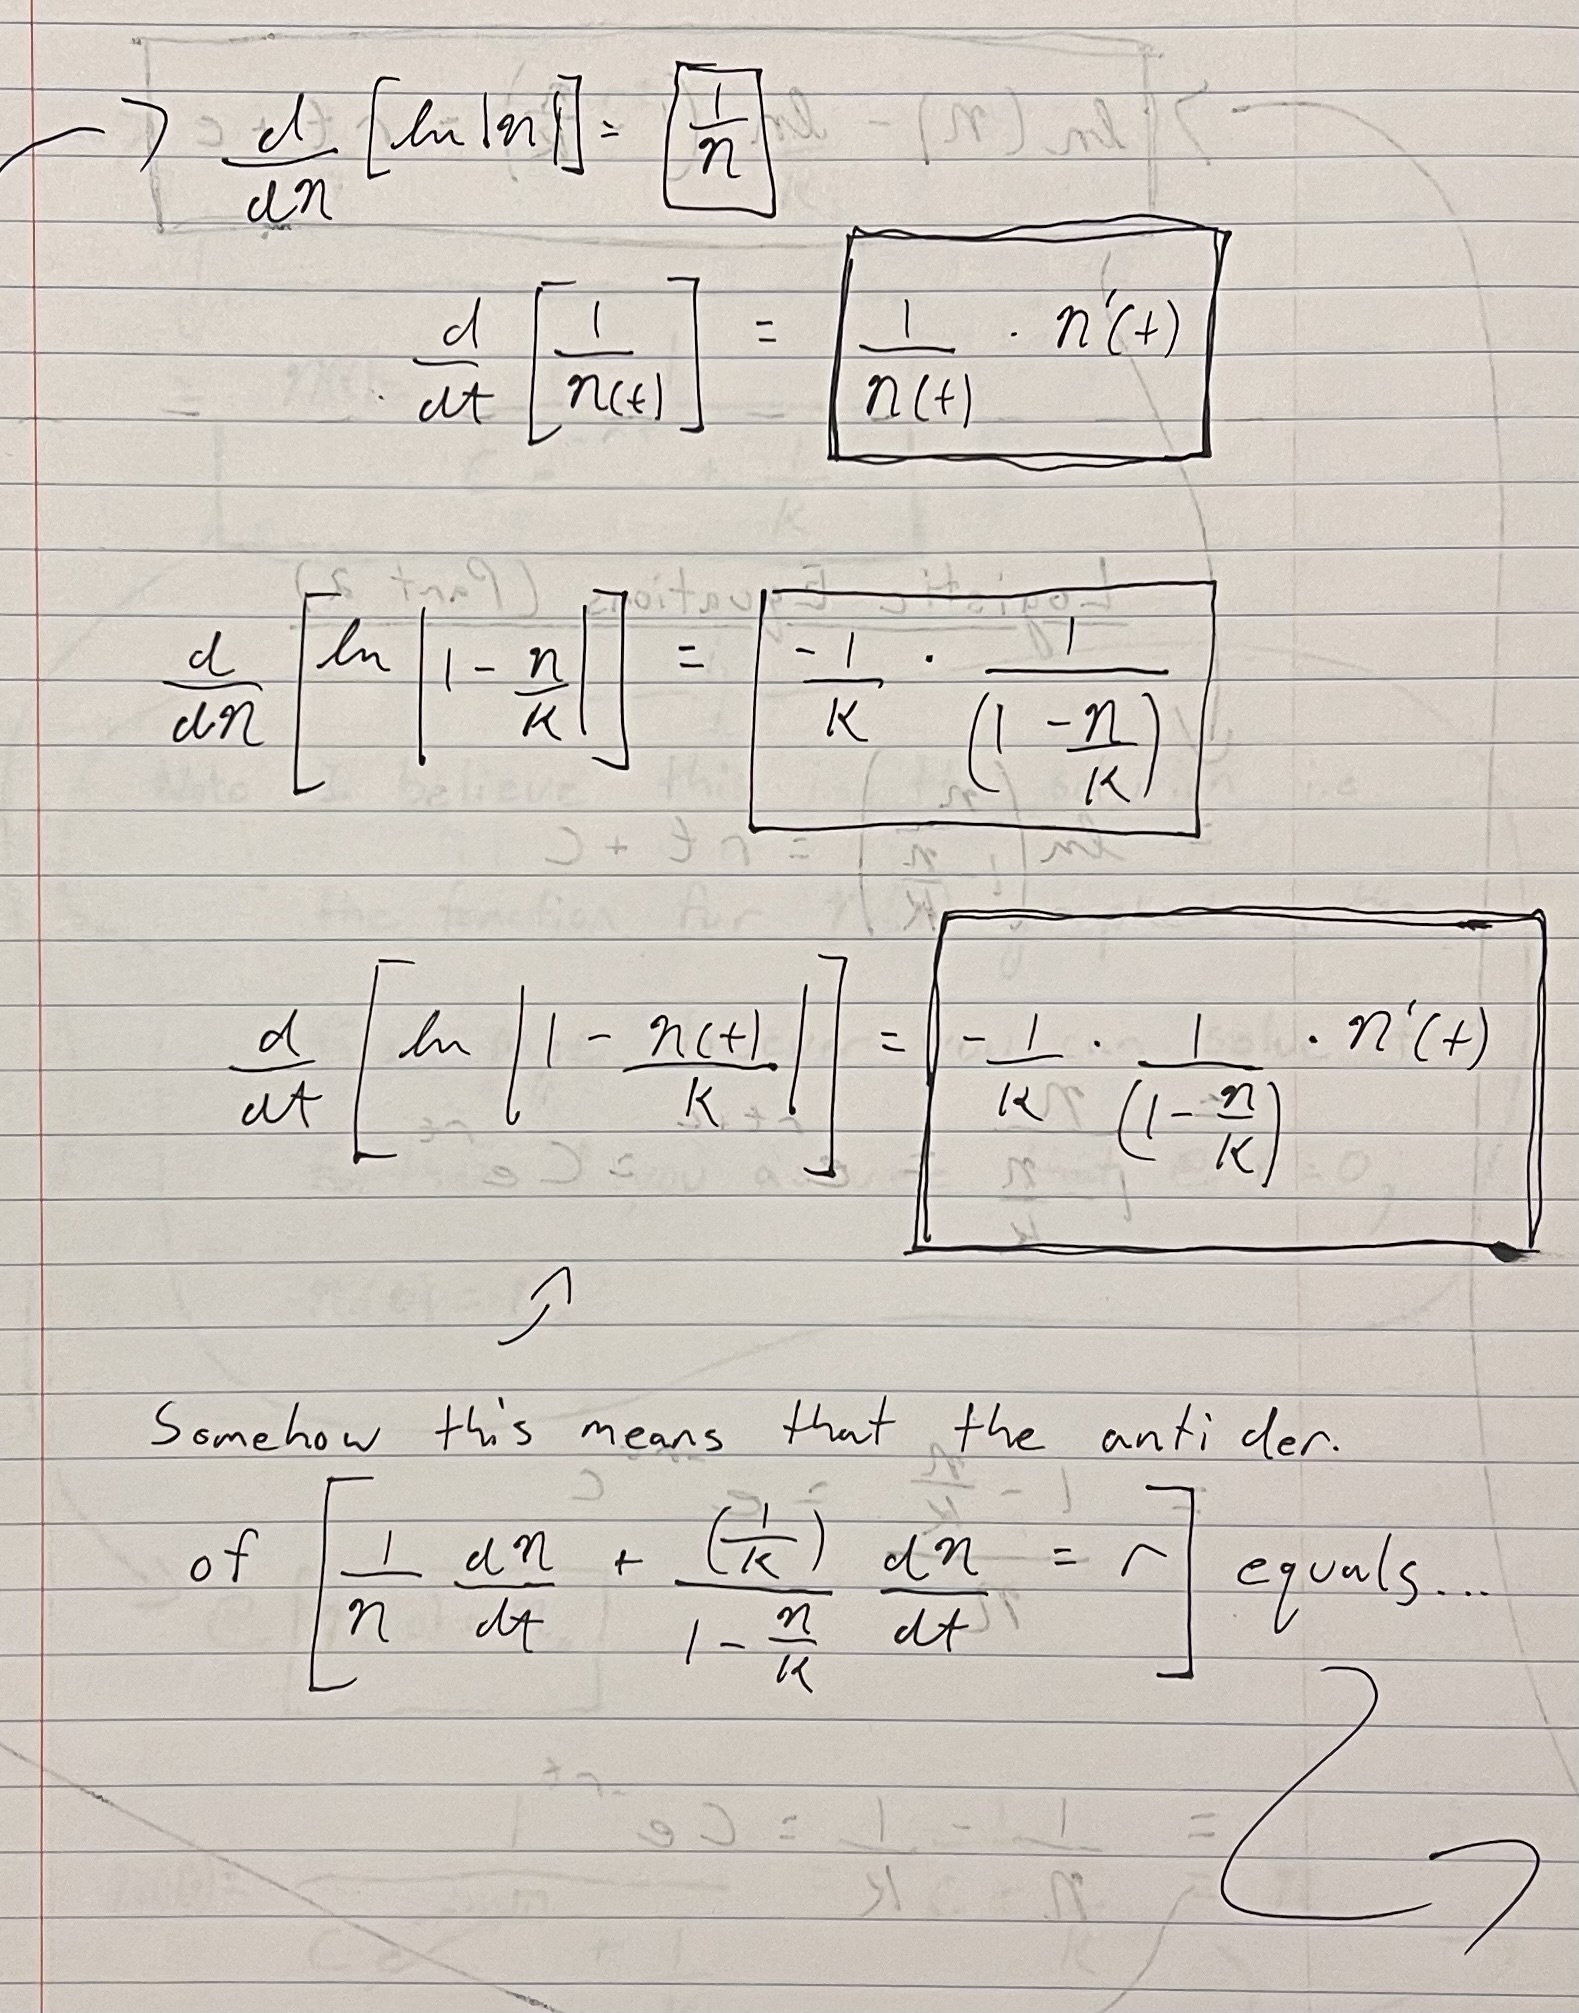 d/dn [ln |n|] = 1/n
d/dt [1/n(t)] = 1/n(t) · n'(t)
d/dn [ln |1 - n/k|] = -1/k · 1/(1 - n/k)
d/dt [ln |1 - n(t)/k|] = -1/k · 1/(1 - n/k) · n'(t)
Somehow this means that the anti der.
of [1/n dn/dt + (1/k)/(1 - n/k) dn/dt = r] equals...